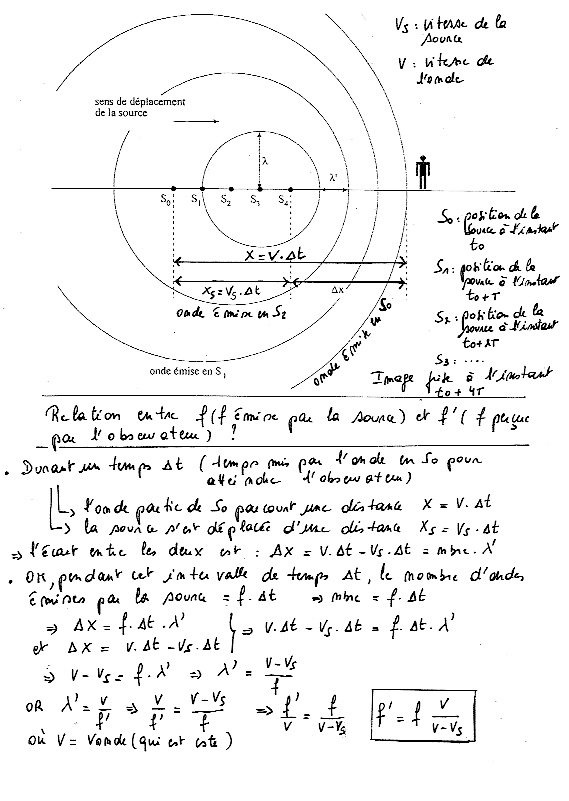 Vs : vitesse de la
source
V : vitesse de
l'onde
sens de déplacement
de la source
λ
λ'
S₀ S₁ S₂ S₃ S₄
X = V. Δt
Xs = Vs . Δt
ΔX
onde émise en S₂
onde émise en S₀
onde émise en S₁
S₀ : position de la
source à l'instant
t₀
S₁ : position de la
source à l'instant
t₀+T
S₂ : position de la
source à l'instant
t₀+2T
S₃ : ....
Image prise à l'instant
t₀ + 4T
Relation entre f (f émise par la source) et f' ( f perçue
par l'observateur) ?
• Durant un temps Δt ( temps mis par l'onde en S₀ pour
atteindre l'observateur)
↳ l'onde partie de S₀ parcourt une distance X = V. Δt
↳ la source s'est déplacée d'une distance Xs = Vs . Δt
⇒ l'écart entre les deux est : ΔX = V. Δt - Vs . Δt = nbre . λ'
• OR, pendant cet intervalle de temps Δt, le nombre d'ondes
émises par la source = f. Δt ⇒ nbre = f. Δt
⇒ ΔX = f. Δt . λ'
et ΔX = V. Δt - Vs . Δt } ⇒ V. Δt - Vs . Δt = f. Δt . λ'
⇒ V - Vs = f. λ' ⇒ λ' = (V-Vs)/f
OR λ' = V/f' ⇒ V/f' = (V-Vs)/f ⇒ f'/V = f/(V-Vs) f' = f V/(V-Vs)
où V = Vonde (qui est cste)